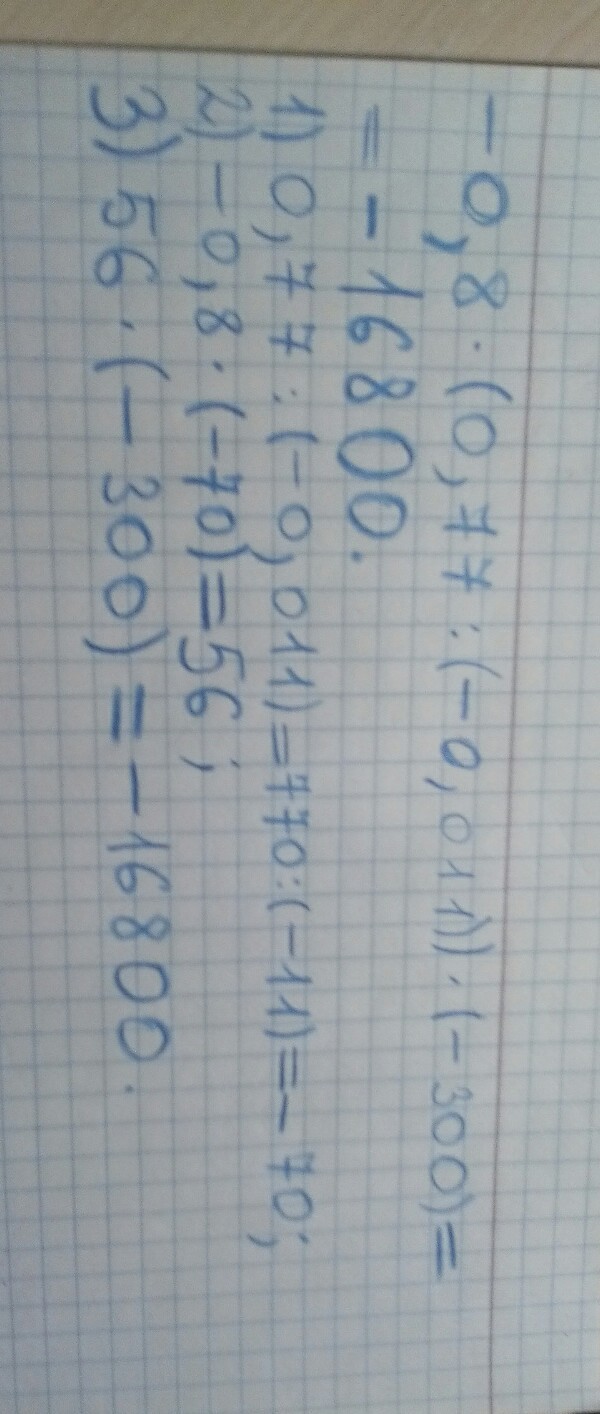 -0,8 · (0,77 : (-0,011)) · (-300) =
= - 16800.
1) 0,77 : (-0,011) = 770 : (-11) = - 70;
2) -0,8 · (-70) = 56;
3) 56 · (-300) = -16800.